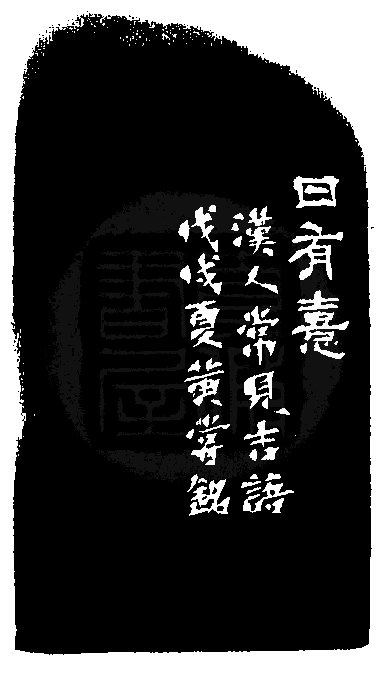 日有憙
漢人常見吉語
戊戌夏黄嘗銘